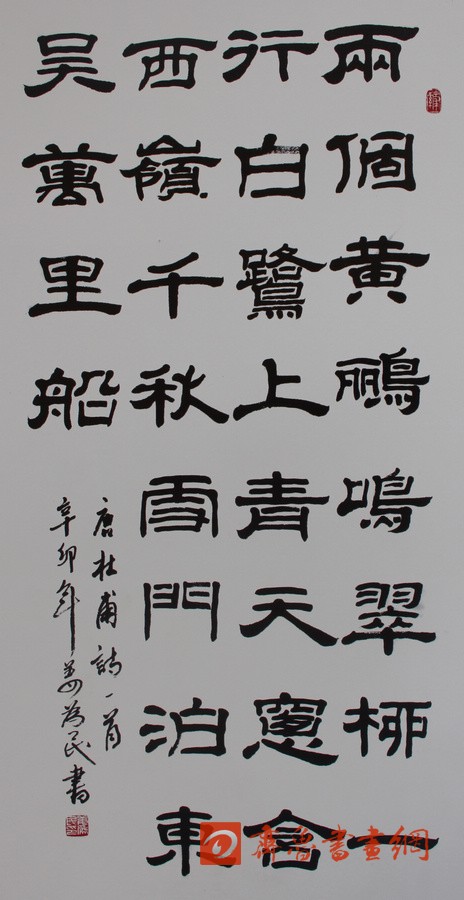 兩個黄鸝鳴翠柳一
行白鷺上青天窻含
西嶺千秋雪門泊東
吴萬里船
唐杜甫詩一首
辛卯年姜为民書
齊魯書畫網